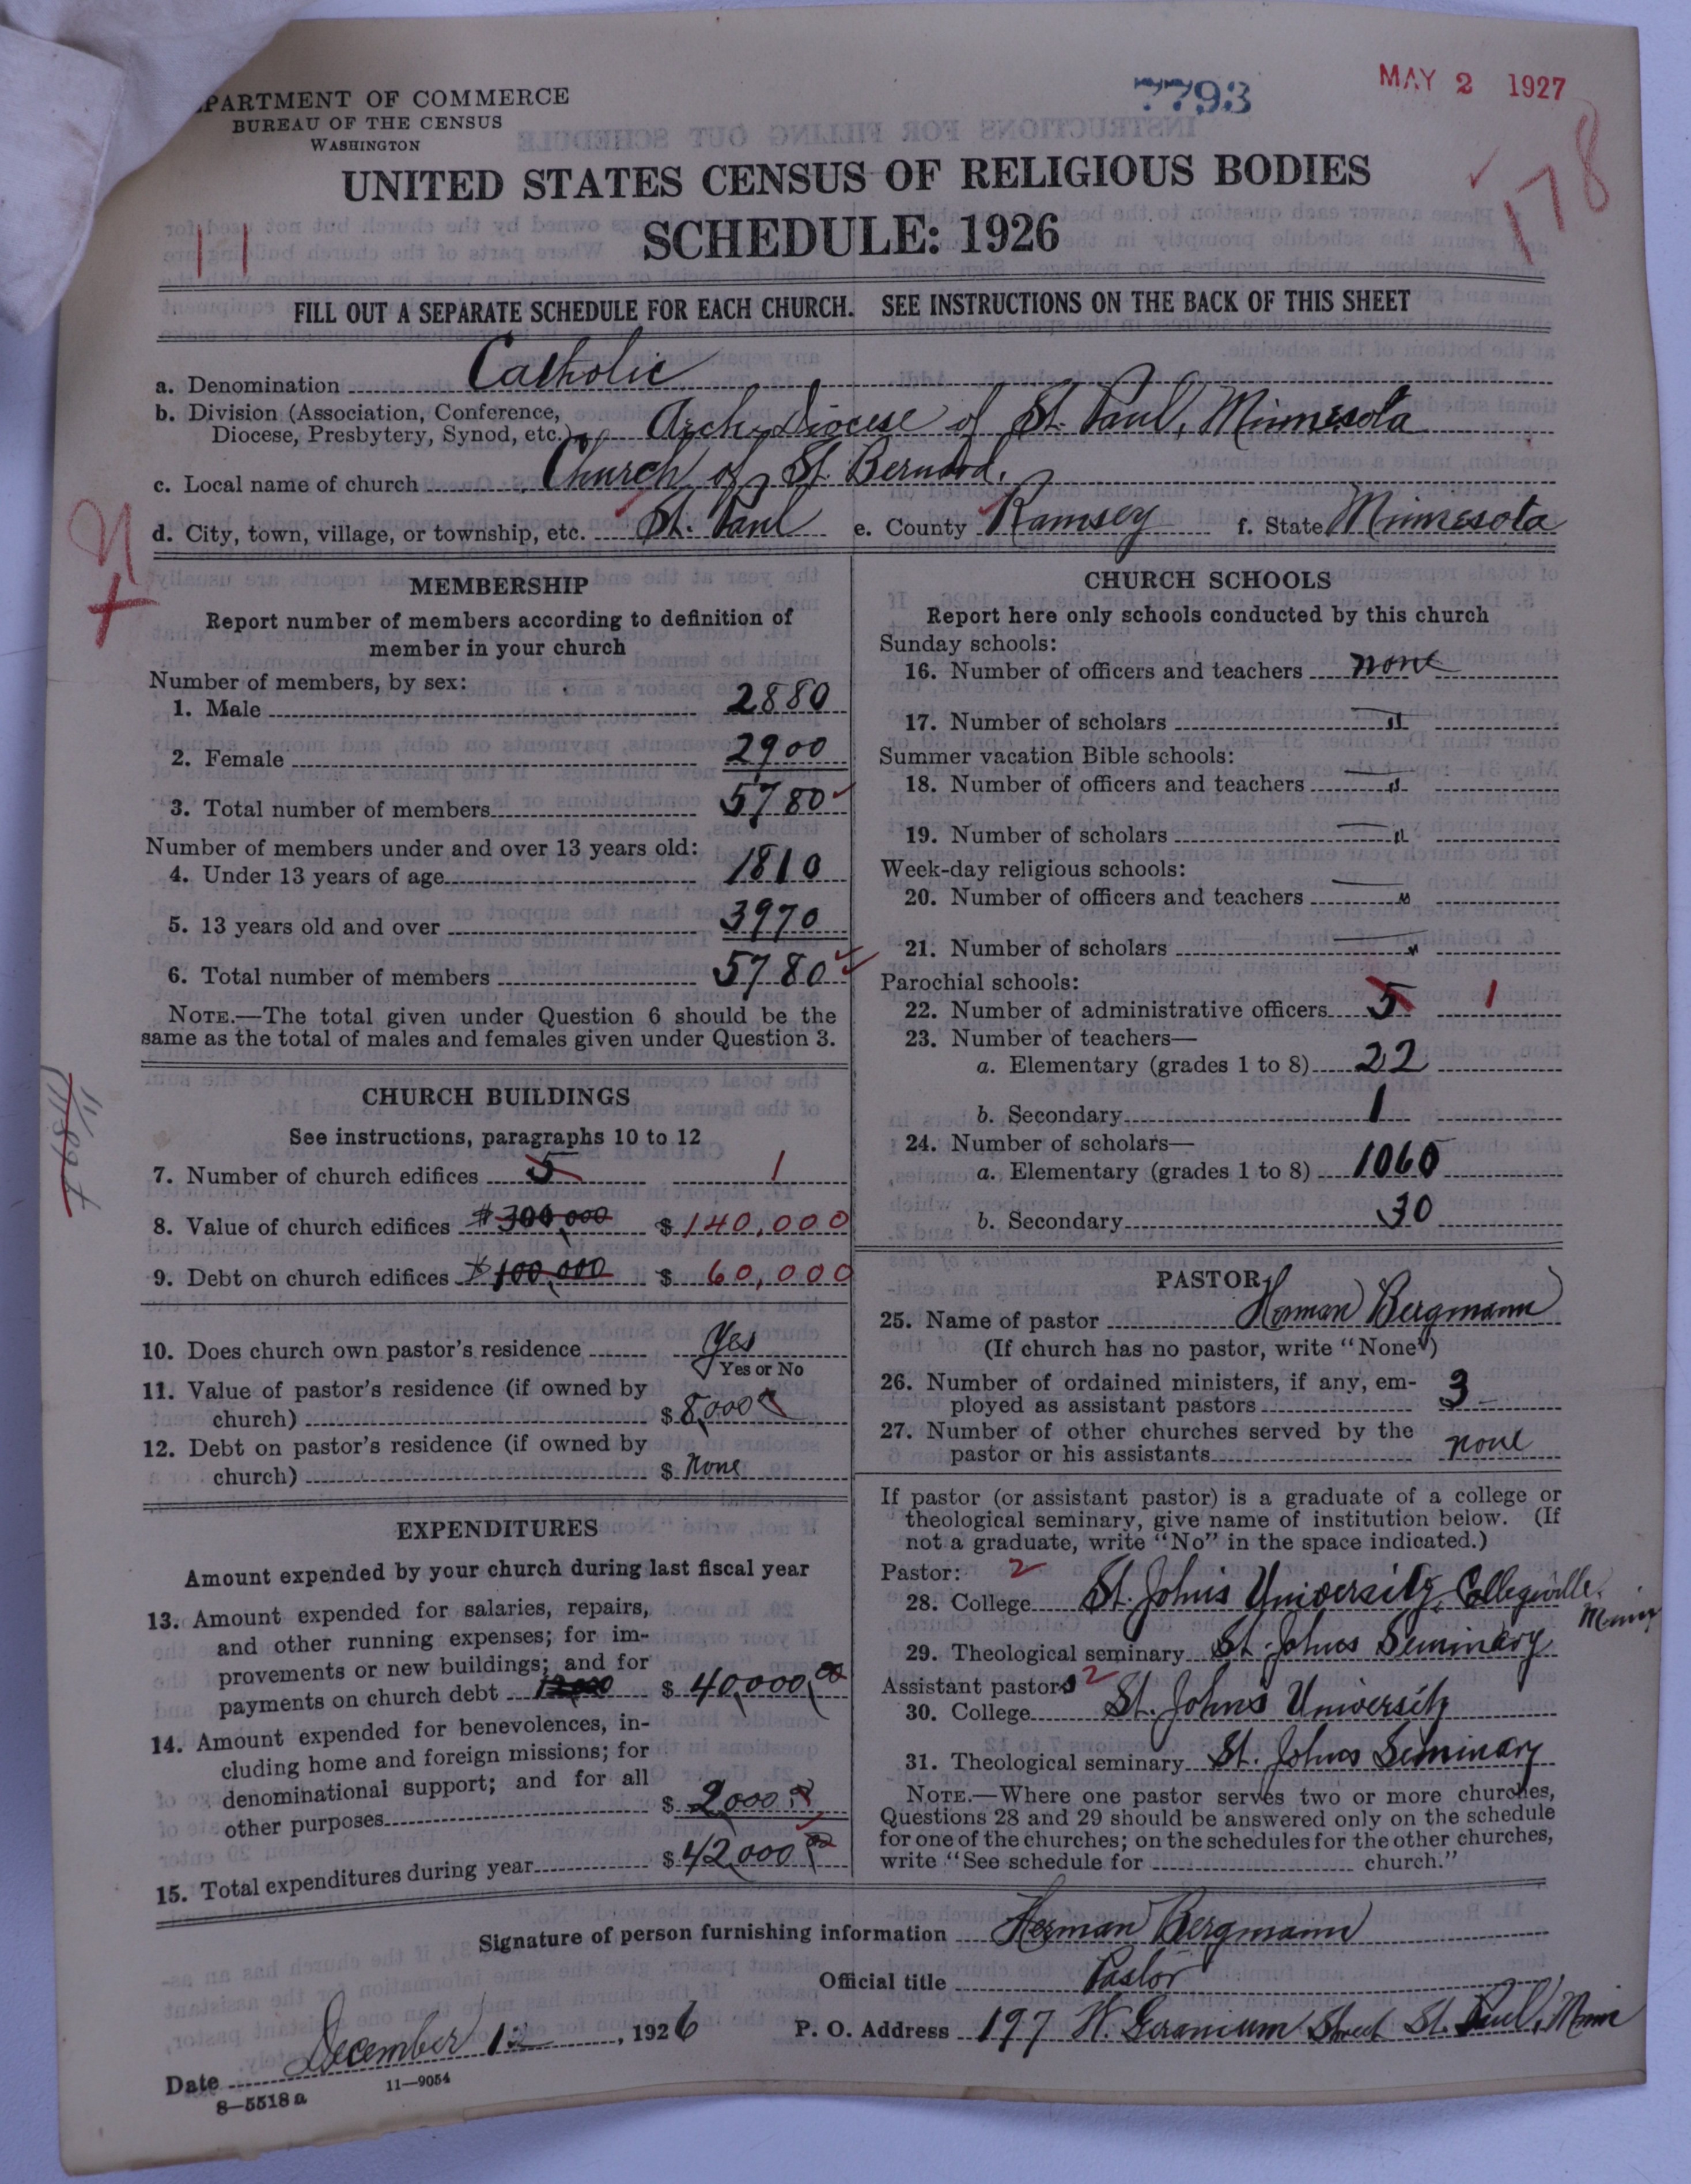 MAY 2 1927
7793
PARTMENT OF COMMERCE
BUREAU OF THE CENSUS
WASHINGTON
178
UNITED STATES CENSUS OF RELIGIOUS BODIES
SCHEDULE: 1926
11
FILL OUT A SEPARATE SCHEDULE FOR EACH CHURCH. SEE INSTRUCTIONS ON THE BACK OF THIS SHEET
a. Denomination Catholic
b. Division (Association, Conference,
Diocese, Presbytery, Synod, etc.) Arch-Diocese of St. Paul, Minnesota
c. Local name of church Church of St. Bernard.
d. City, town, village, or township, etc. St. Paul e. County Ramsey f. State Minnesota
MEMBERSHIP
Report number of members according to definition of
member in your church
Number of members, by sex:
1. Male 2880
2. Female 2900
3. Total number of members 5780
Number of members under and over 13 years old:
4. Under 13 years of age 1810
5. 13 years old and over 3970
6. Total number of members 5780
NOTE.—The total given under Question 6 should be the
same as the total of males and females given under Question 3.
CHURCH BUILDINGS
See instructions, paragraphs 10 to 12
7. Number of church edifices 5 1
8. Value of church edifices $300,000 $140,000
9. Debt on church edifices $100,000 $60,000
10. Does church own pastor's residence Yes
Yes or No
11. Value of pastor's residence (if owned by
church) $8,000
12. Debt on pastor's residence (if owned by
church) $ none
EXPENDITURES
Amount expended by your church during last fiscal year
13. Amount expended for salaries, repairs,
and other running expenses; for im-
provements or new buildings; and for
payments on church debt 12000 $40,000.00
14. Amount expended for benevolences, in-
cluding home and foreign missions; for
denominational support; and for all
other purposes $2,000
15. Total expenditures during year $42,000.00
CHURCH SCHOOLS
Report here only schools conducted by this church
Sunday schools:
16. Number of officers and teachers none
17. Number of scholars "
Summer vacation Bible schools:
18. Number of officers and teachers "
19. Number of scholars "
Week-day religious schools:
20. Number of officers and teachers "
21. Number of scholars "
Parochial schools:
22. Number of administrative officers 5 1
23. Number of teachers—
a. Elementary (grades 1 to 8) 22
b. Secondary 1
24. Number of scholars—
a. Elementary (grades 1 to 8) 1060
b. Secondary 30
PASTOR
25. Name of pastor Herman Bergmann
(If church has no pastor, write "None")
26. Number of ordained ministers, if any, em-
ployed as assistant pastors 3
27. Number of other churches served by the
pastor or his assistants none
If pastor (or assistant pastor) is a graduate of a college or
theological seminary, give name of institution below. (If
not a graduate, write "No" in the space indicated.)
Pastor: 2
28. College St. John's University, Collegeville, Minn
29. Theological seminary St. Johns Seminary
Assistant pastors 2
30. College St. John's University
31. Theological seminary St. Johns Seminary
NOTE.—Where one pastor serves two or more churches,
Questions 28 and 29 should be answered only on the schedule
for one of the churches; on the schedules for the other churches,
write "See schedule for church."
Signature of person furnishing information Herman Bergmann
Official title Pastor
Date December 12, 1926 P. O. Address 197 W. Geranium Street St. Paul, Minn
8—5518a 11—9054